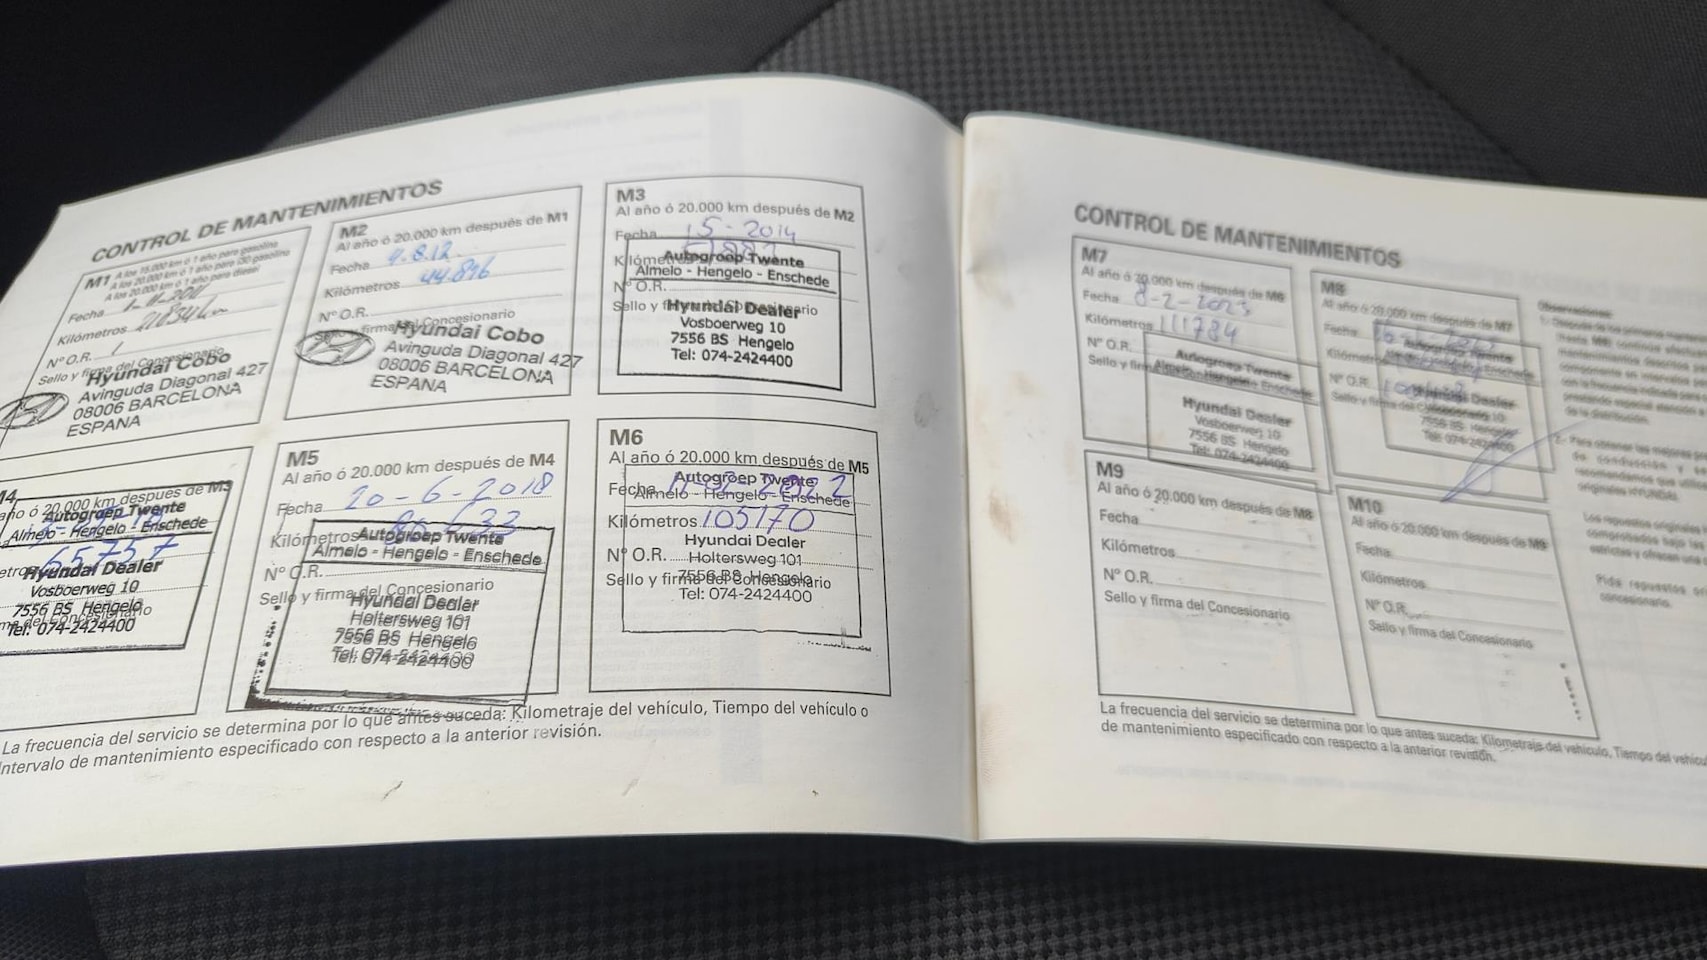 CONTROL DE MANTENIMIENTOS
M1
A los 15.000 km ó 1 año para gasolina
A los 20.000 km ó 1 año para i30 gasolina
A los 20.000 km ó 1 año para diesel
Fecha 1-11-2011
Kilómetros 21834 km
Nº O.R. 1
Sello y firma del Concesionario
Hyundai Cobo
Avinguda Diagonal 427
08006 BARCELONA
ESPANA
M2
Al año ó 20.000 km después de M1
Fecha 9.8.12
Kilómetros 44.896
Nº O.R.
Sello y firma del Concesionario
Hyundai Cobo
Avinguda Diagonal 427
08006 BARCELONA
ESPANA
M3
Al año ó 20.000 km después de M2
Fecha 15-2014
Kilómetros
Autogroep Twente
Almelo - Hengelo - Enschede
Nº O.R.
Sello y firma del Concesionario
Hyundai Dealer
Vosboerweg 10
7556 BS Hengelo
Tel: 074-2424400
ño ó 20.000 km después de M3
Autogroep Twente
Almelo - Hengelo - Enschede
65757
Hyundai Dealer
Vosboerweg 10
7556 BS Hengelo
ma del Concesionario
Tel: 074-2424400
M5
Al año ó 20.000 km después de M4
Fecha 20-6-2018
Kilómetros 86633
Autogroep Twente
Almelo - Hengelo - Enschede
Nº O.R.
Sello y firma del Concesionario
Hyundai Dealer
Holtersweg 101
7556 BS Hengelo
Tel: 074-2424400
M6
Al año ó 20.000 km después de M5
Autogroep Twente
Fecha 2022
Almelo - Hengelo - Enschede
Kilómetros 105170
Hyundai Dealer
Nº O.R.
Holtersweg 101
7556 BS Hengelo
Sello y firma del Concesionario
Tel: 074-2424400
La frecuencia del servicio se determina por lo que antes suceda: Kilometraje del vehículo, Tiempo del vehículo o
Intervalo de mantenimiento especificado con respecto a la anterior revisión.
CONTROL DE MANTENIMIENTOS
M7
Al año ó 20.000 km después de M6
Fecha 8-2-2023
Kilómetros 111784
Nº O.R.
Autogroep Twente
Sello y firma
Almelo - Hengelo - Enschede
Hyundai Dealer
Vosboerweg 10
7556 BS Hengelo
Tel: 074-2424400
M8
Al año ó 20.000 km después de M7
Fecha
Autogroep Twente
Kilómetros
Nº O.R.
Sello y firma del Concesionario
Hyundai Dealer
Vosboerweg 10
7556 BS Hengelo
Tel: 074-2424400
M9
Al año ó 20.000 km después de M8
Fecha
Kilómetros
Nº O.R.
Sello y firma del Concesionario
M10
Al año ó 20.000 km después de M9
Fecha
Kilómetros
Nº O.R.
Sello y firma del Concesionario
La frecuencia del servicio se determina por lo que antes suceda: Kilometraje del vehículo, Tiempo del
de mantenimiento especificado con respecto a la anterior revisión.
Observaciones:
originales HYUNDAI.
Pida repuestos
concesionario.